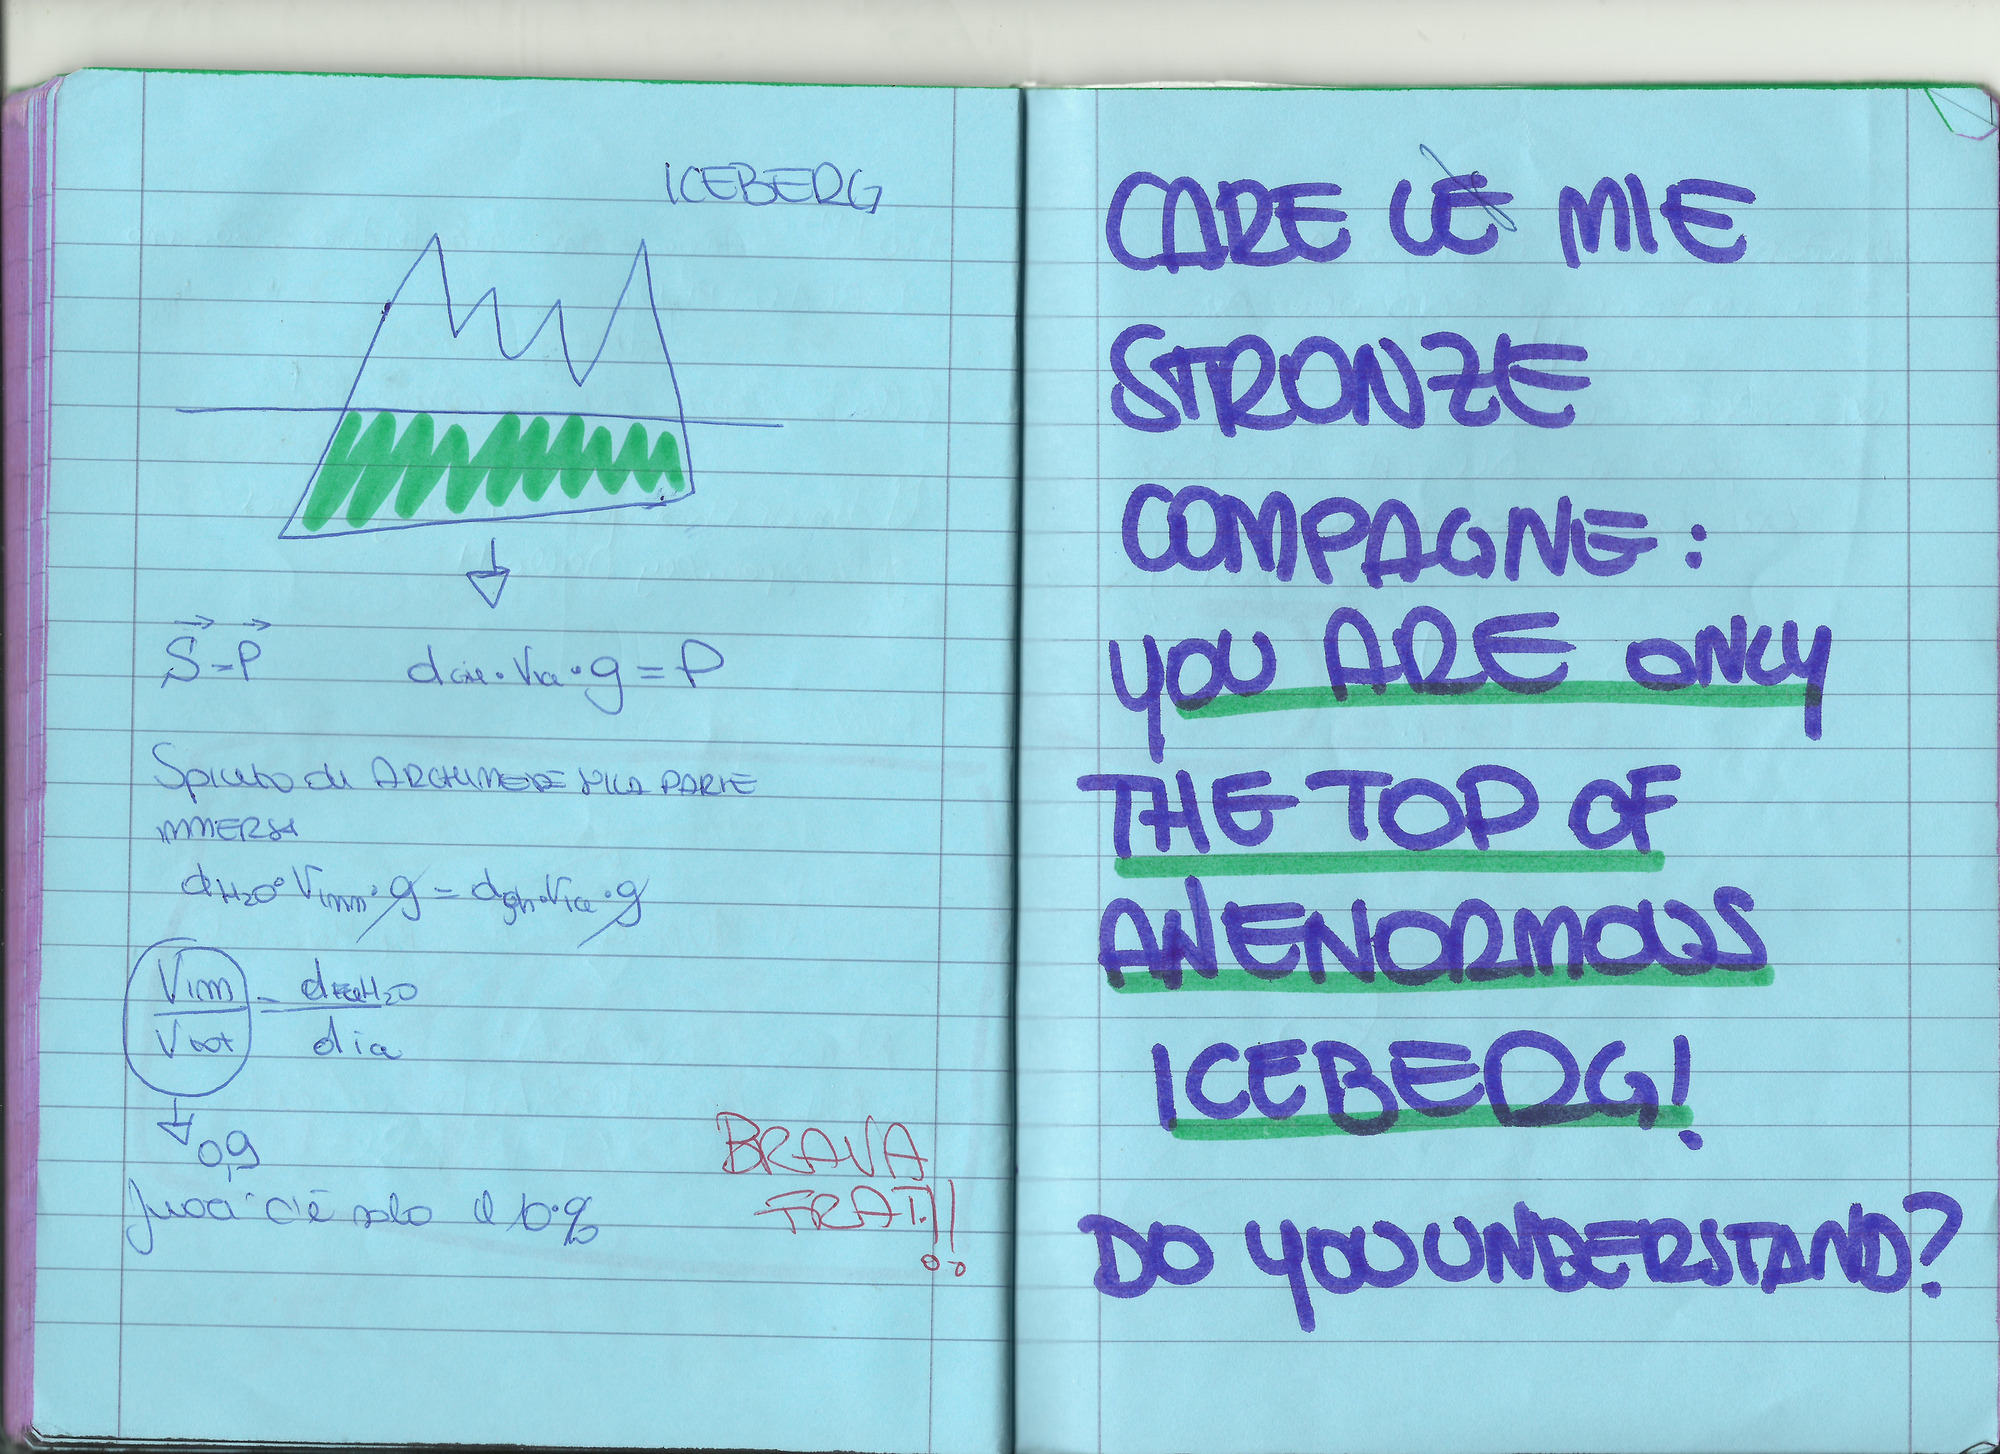 ICEBERG
S = P    dghi · Vice · g = P
Spinta di ARCHIMEDE SULLA PARTE
IMMERSA
dH2O · Vimm · g = dgh · Vice · g
Vim = dH2O
Vtot dia
0,9
fuori c'è solo il 10%
BRAVA
FRAT!!
CARE LE MIE
STRONZE
COMPAGNE:
YOU ARE ONLY
THE TOP OF
AN ENORMOUS
ICEBERG!
DO YOU UNDERSTAND?